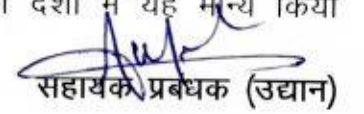 दशा में यह मान्य किया
सहायक प्रबंधक (उद्यान)